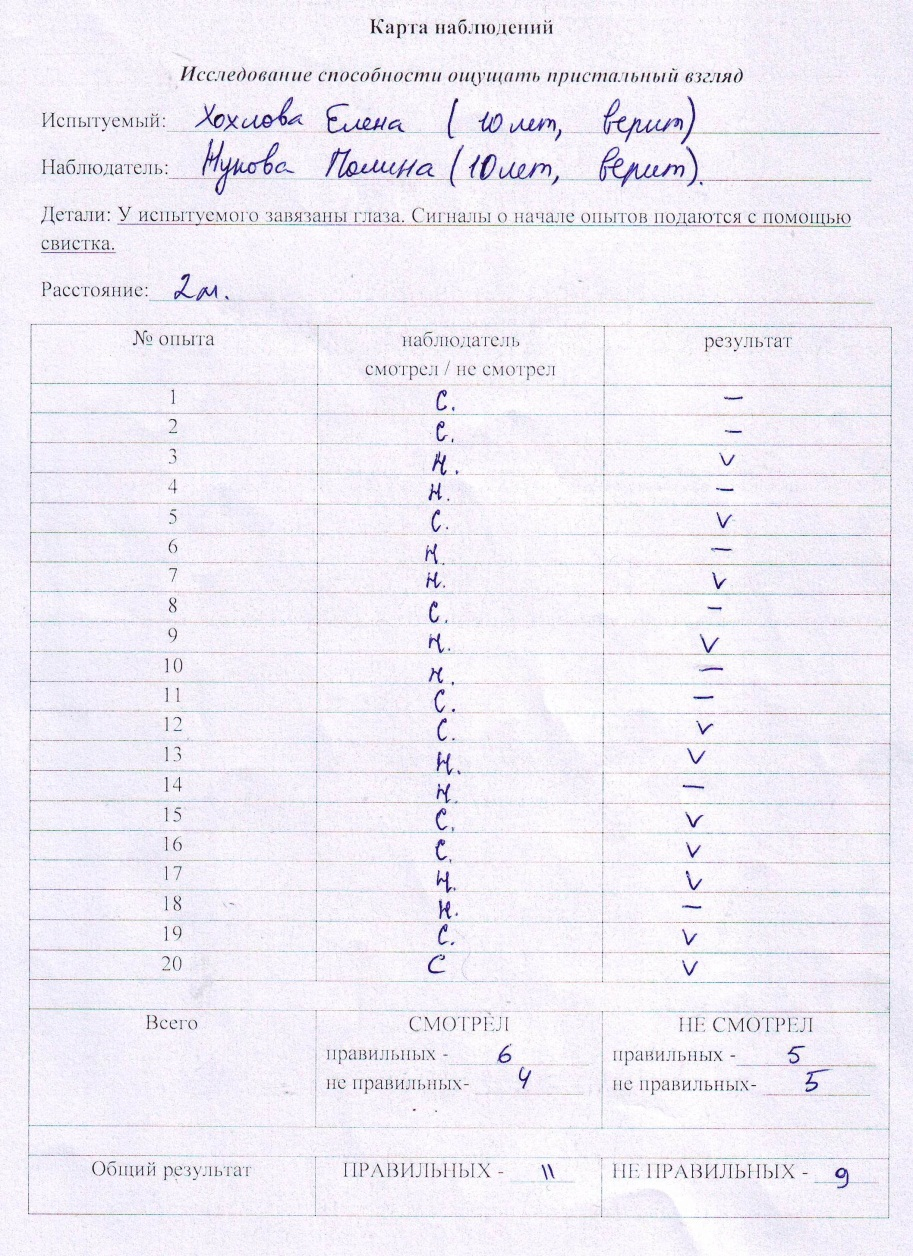 Карта наблюдений
Исследование способности ощущать пристальный взгляд
Испытуемый: Хохлова Елена (10 лет, верит)
Наблюдатель: Жукова Полина (10 лет, верит).
Детали: У испытуемого завязаны глаза. Сигналы о начале опытов подаются с помощью
свистка.
Расстояние: 2 м.
№ опыта наблюдатель результат
смотрел / не смотрел
1 С. –
2 С. –
3 Н. V
4 Н. –
5 С. V
6 Н. –
7 Н. V
8 С. –
9 Н. V
10 Н. –
11 С. –
12 С. V
13 Н. V
14 Н. –
15 С. V
16 С. V
17 Н. V
18 Н. –
19 С. V
20 С V
Всего СМОТРЕЛ НЕ СМОТРЕЛ
правильных - 6 правильных - 5
не правильных- 4 не правильных- 5
Общий результат ПРАВИЛЬНЫХ - 11 НЕ ПРАВИЛЬНЫХ - 9